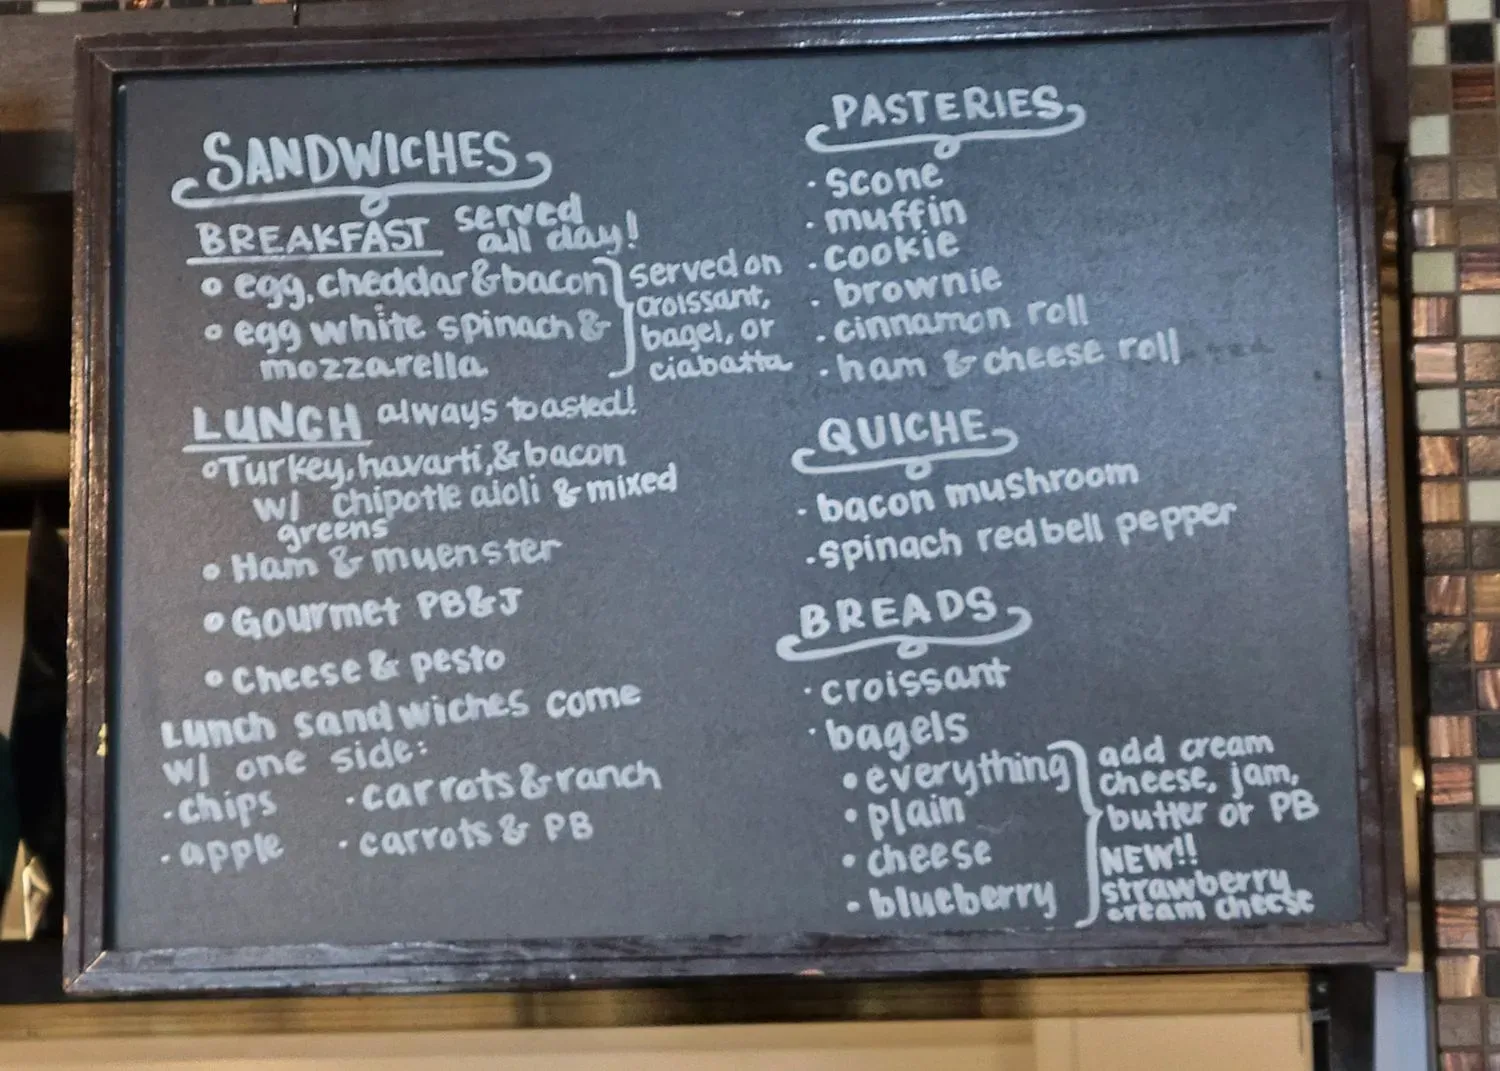 SANDWICHES
BREAKFAST served all day!
egg, cheddar & bacon
egg white spinach &
mozzarella
served on
croissant,
bagel, or
ciabatta
LUNCH always toasted!
Turkey, havarti, & bacon
w/ chipotle aioli & mixed
greens
Ham & muenster
Gourmet PB&J
Cheese & pesto
Lunch sandwiches come
w/ one side:
· chips · carrots & ranch
· apple · carrots & PB
PASTERIES
· scone
· muffin
· cookie
· brownie
· cinnamon roll
· ham & cheese roll
QUICHE
· bacon mushroom
· spinach red bell pepper
BREADS
· croissant
· bagels
• everything
• plain
• cheese
• blueberry
add cream
cheese, jam,
butter or PB
NEW!!
strawberry
cream cheese